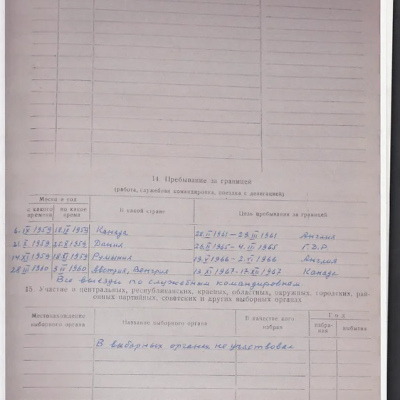 14. Пребывание за границей
(работа, служебная командировка, поездка с делегацией)
Месяц и год
с какого времени
по какое время
В какой стране
Цель пребывания за границей
1959 1959 Канада 1961 Англия
1959 Дания 1965 1965 Г.Д.Р.
1959 1959 Румыния 1966 1966 Англия
1960 1960 Австрия, Венгрия 1967 1967 Канада
Все выезды по служебным командировкам
15. Участие в центральных, республиканских, краевых, областных, окружных, городских, рай-
онных партийных, советских и других выборных органах
Местонахождение выборного органа
Название выборного органа
В качестве кого избран
Год
избра-ния
выбытия
В выборных органах не участвовал